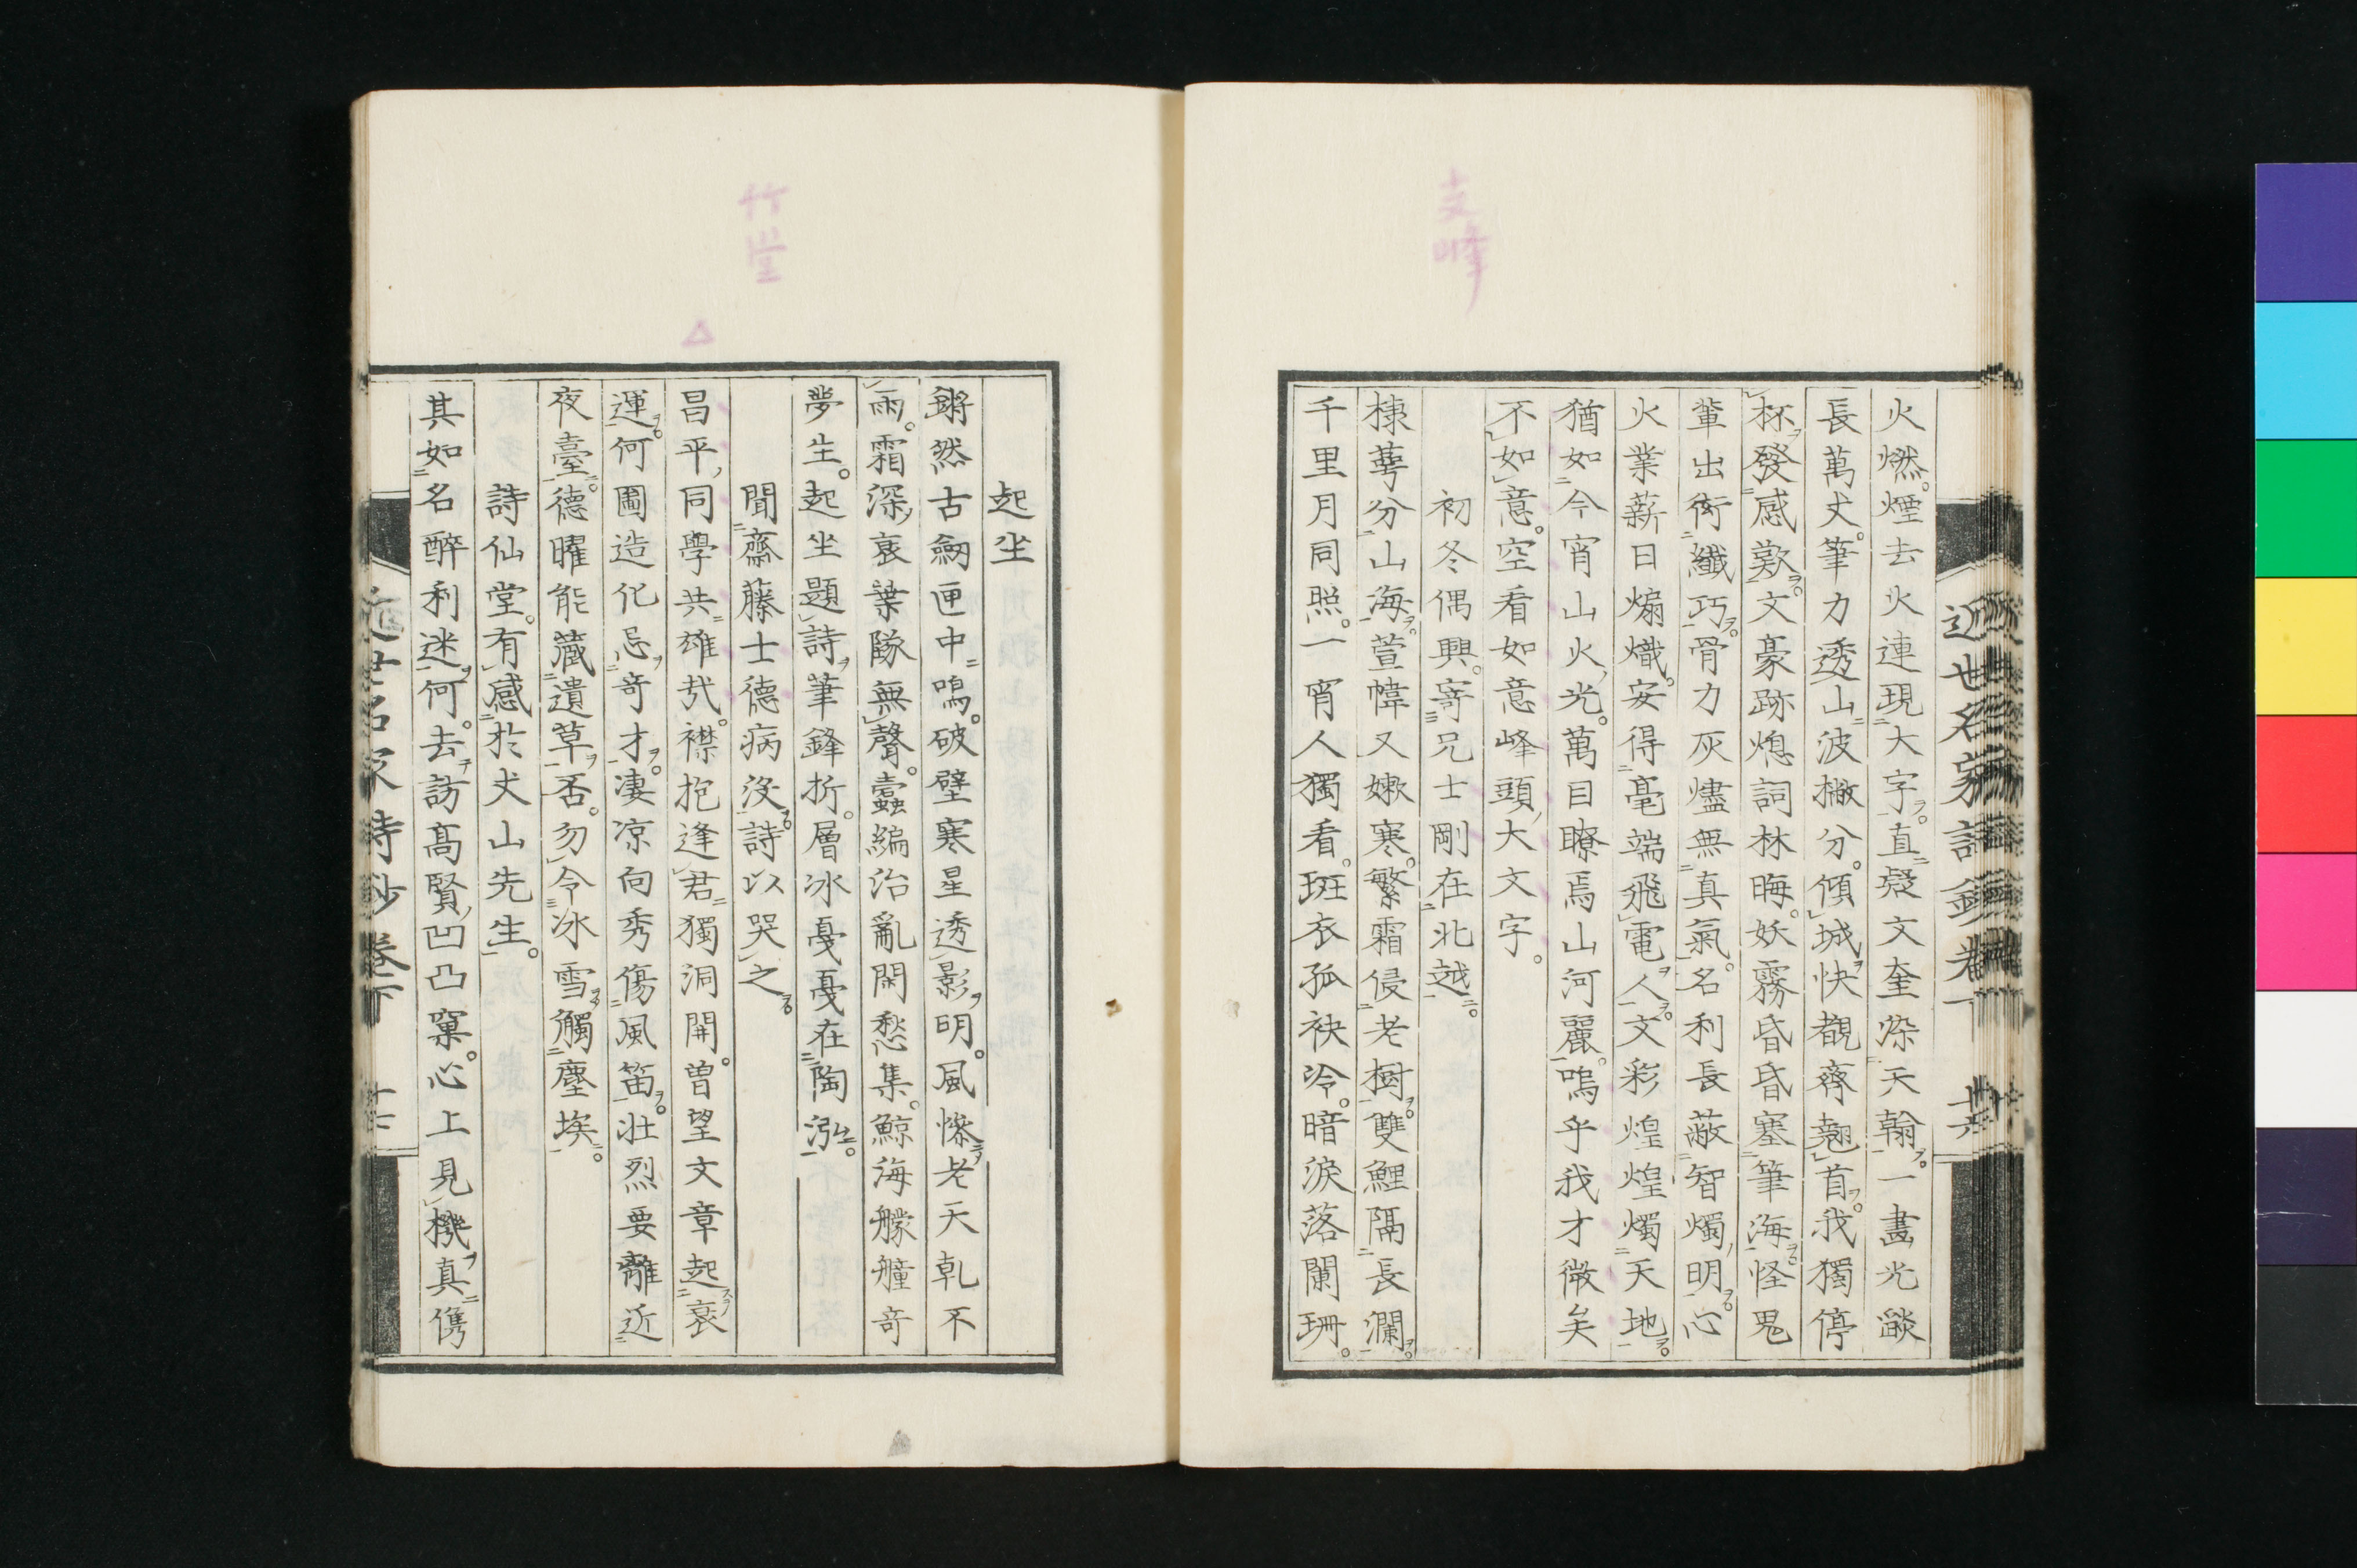 支峰
近世名家詩鈔卷下 廿六
火燃。煙去火連現大字。直疑文奎染天翰。一畵光燄
長萬丈。筆力透山波撇分。傾城快覩齊翹首。我獨停
杯發感歎。文豪跡熄詞林晦。妖霧昏昏塞筆海。怪鬼
輩出衒纖巧。骨力灰燼無真氣。名利長蔽智燭明。心
火業薪日煽熾。安得毫端飛電人。文彩煌煌燭天地。
猶如今宵山火光。萬目瞭焉山河麗。嗚乎我才微矣
不如意。空看如意峰頭大文字。
初冬偶興。寄兄士剛在北越。
棣萼分山海。萱幃又嫩寒。繁霜侵老樹。雙鯉隔長瀾。
千里月同照。一宵人獨看。斑衣孤袂冷。暗淚落闌珊。
竹堂
△
起坐
鏘然古劒匣中鳴。破壁寒星透影明。風慘老天乹不
雨。霜深衰葉隊無聲。蠧編治亂閑愁集。鯨海艨艟奇
夢生。起坐題詩筆鋒折。層冰戛戛在陶泓。
聞齋藤士德病沒。詩以哭之。
昌平同學共雄㢤。襟抱逢君獨洞開。曽望文章起衰
運。何圖造化忌奇才。凄凉向秀傷風笛。壮烈要離近
夜臺。德曜能藏遺草否。勿令冰雪觸塵埃。
詩仙堂。有感於丈山先生。
其如名醉利迷何。去訪髙賢凹凸窠。心上見機真儁
近世名家詩鈔卷下